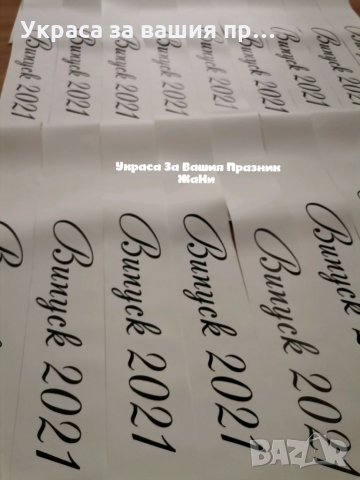 Украса за вашия пр...
Випуск 2021
Випуск 2021
Випуск 2021
Випуск 2021
Випуск 2021
Випуск 2021
Випуск 2021
Украса За Вашия Празник
ЖаНи
Випуск 2021
Випуск 2021
Випуск 2021
Випуск 2021
Випуск 2
BAZAR